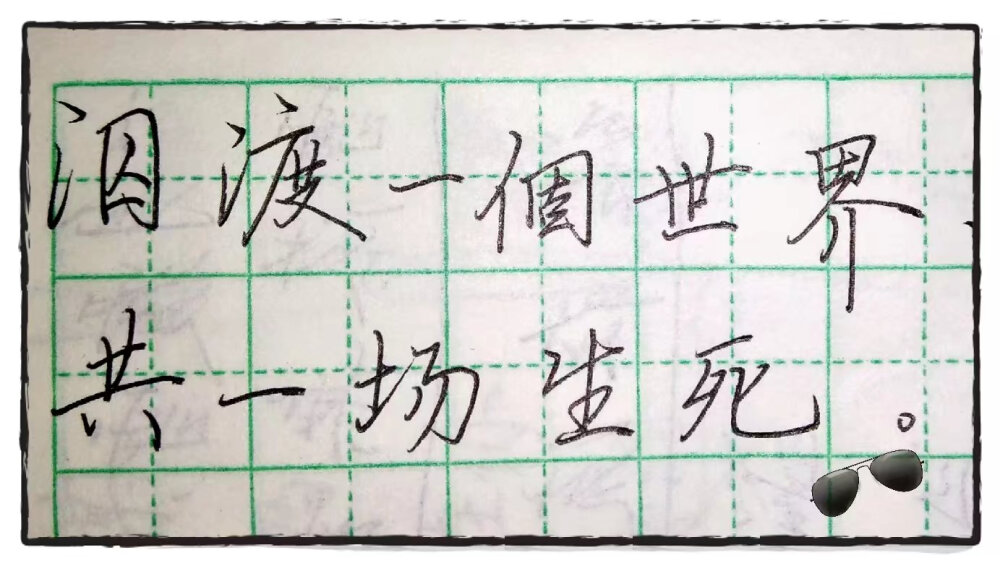 泅渡一個世界、
共一场生死。